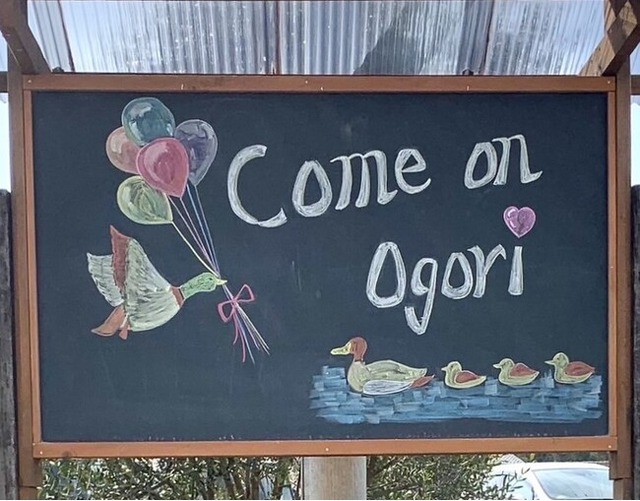 Come on
Ogori